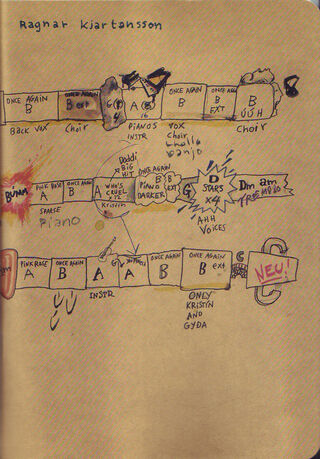 Ragnar Kjartansson
ONCE AGAIN
B
ONCE AGAIN
B ext
A
16
B
ONCE AGAIN
B
EXT
B
ÚÚH
8
BACK VOX
Choir
PIANOS
INSTR
VOX
Choir
banjo
Choir
PINK ROSE
A
ONCE AGAIN
B
A
WHO'S
CRUEL
Kristín
Daddi
BIG
HIT
ONCE AGAIN
B
PIANO
DARKER
B
EXT
G
D
STARS
X4
Dm am
SPARSE
Piano
AHH
VOICES
PINK ROSE
A
ONCE AGAIN
B
A
A
ONCE AGAIN
B
ONCE AGAIN
B ext
NEU!
INSTR
ONLY
KRISTÍN
AND
GYÐA